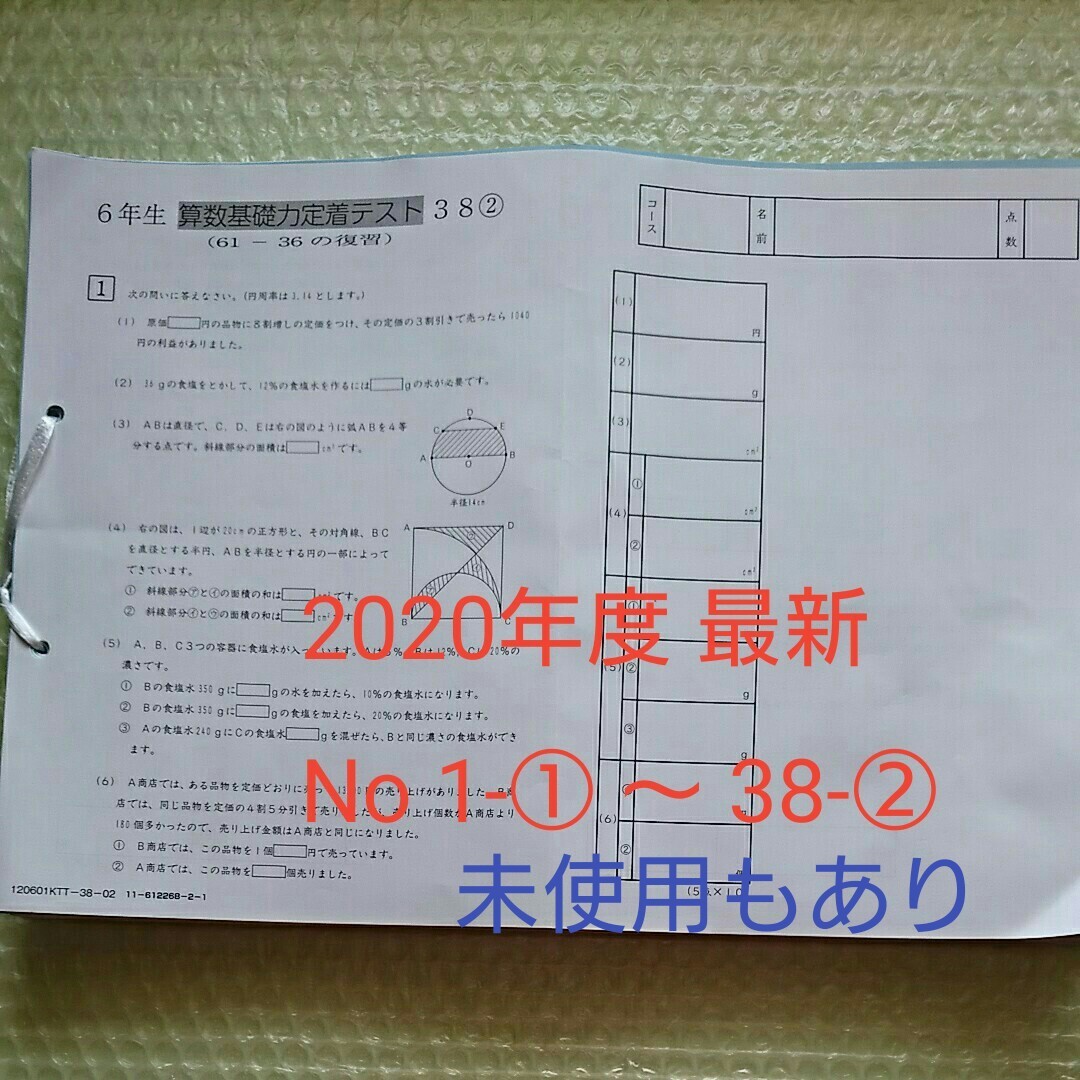 6年生 算数基礎力定着テスト 38②
(61－36の復習)
コース
名前
点数
1 次の問いに答えなさい。(円周率は3.14とします。)
(1) 原価 円の品物に8割増しの定価をつけ、その定価の3割引きで売ったら1040
円の利益がありました。
(2) 36gの食塩をとかして、12%の食塩水を作るには gの水が必要です。
(3) ABは直径で、C、D、Eは右の図のように弧ABを4等
分する点です。斜線部分の面積は cm²です。
D
C E
A O B
半径14cm
(4) 右の図は、1辺が20cmの正方形と、その対角線、BC
を直径とする半円、ABを半径とする円の一部によって
できています。
① 斜線部分㋐と㋑の面積の和は cm²です。
② 斜線部分㋑と㋒の面積の和は cm²です
A D
B C
(5) A、B、C3つの容器に食塩水が入っています。Aは %、Bは12%、Cは20%の
濃さです。
① Bの食塩水350gに gの水を加えたら、10%の食塩水になります。
② Bの食塩水350gに gの食塩を加えたら、20%の食塩水になります。
③ Aの食塩水240gにCの食塩水 gを混ぜたら、Bと同じ濃さの食塩水ができ
ます。
(6) A商店では、ある品物を定価どおりに売 の売り上げがありました
店では、同じ品物を定価の4割5分引きで売りましたが、売り上げ個数がA商店より
180個多かったので、売り上げ金額はA商店と同じになりました。
① B商店では、この品物を1個 円で売っています。
② A商店では、この品物を 個売りました。
120601KTT-38-02 11-612268-2-1
(1) 円
(2) g
(3) cm²
(4) ① cm²
② cm²
(5)
② g
③ g
(6)
② 個
(5点×10
2020年度 最新
No.1-① ～ 38-②
未使用もあり